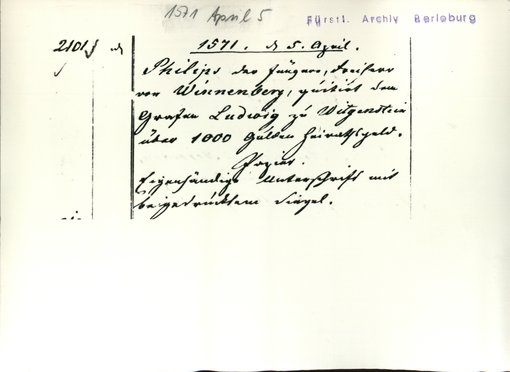 1571 April 5
Fürstl. Archiv Berleburg
1571. d 5. April.
Philips der Jüngere, Freiherr
von Winnenberg, quitirt dem
Grafen Ludwig zu Witgenstein
über 1000 Gulden Heirathsgeld.
Papier.
Eigenhändige Unterschrift mit
beigedrücktem Siegel.